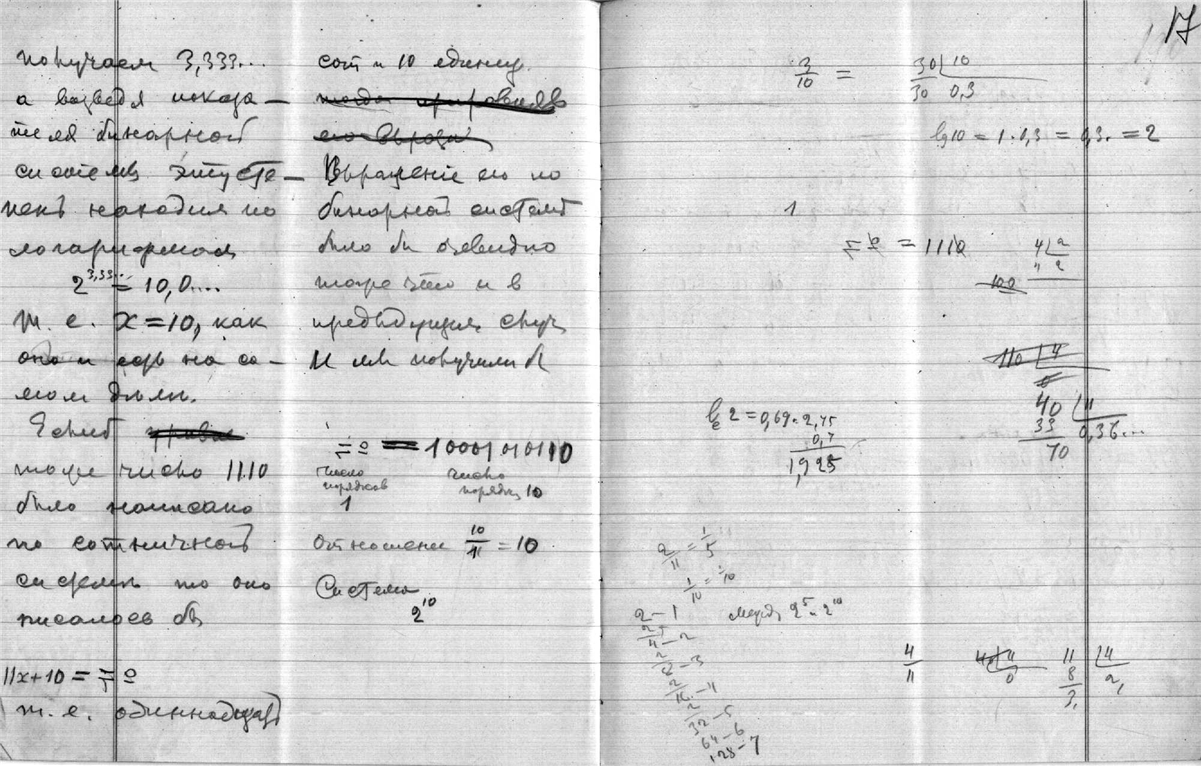 получаем 3,333...
а возведя показа-
теля бинарной
системы в эту сте-
пень находим по
логарифмам
2^3,33... = 10,0....
т. е. x = 10, как
оно и есть на са-
мом деле.
Если б
тоже число 1110
было написано
по сотничной
системе то оно
писалось бы
11x+10 =
т. е. одиннадцать
сот и 10 единиц.
тогда
его
Выражение его по
бинарной системе
было бы очевидно
тоже что и в
предыдущем случ.
и мы получили б
= 10001010110
число порядков
1
число порядк. 10
Отношение 10/11 = 10
Система
2^10
17
3/10 =
30 10
30 0,3
lg10 = 1 · 0,3 = 0,3. = 2
1
= 1110
4 2
4 2
100
110 4
40 11
33 0,36...
70
2 = 0,69 · 2,75
0,7
1,925
2/11 = 1/5
1/10 =
между 2^5 · 2^10
2 - 1
4 - 2
- 3
- 4
32 - 5
64 - 6
128 - 7
4/11
11 4
8 2,
3.